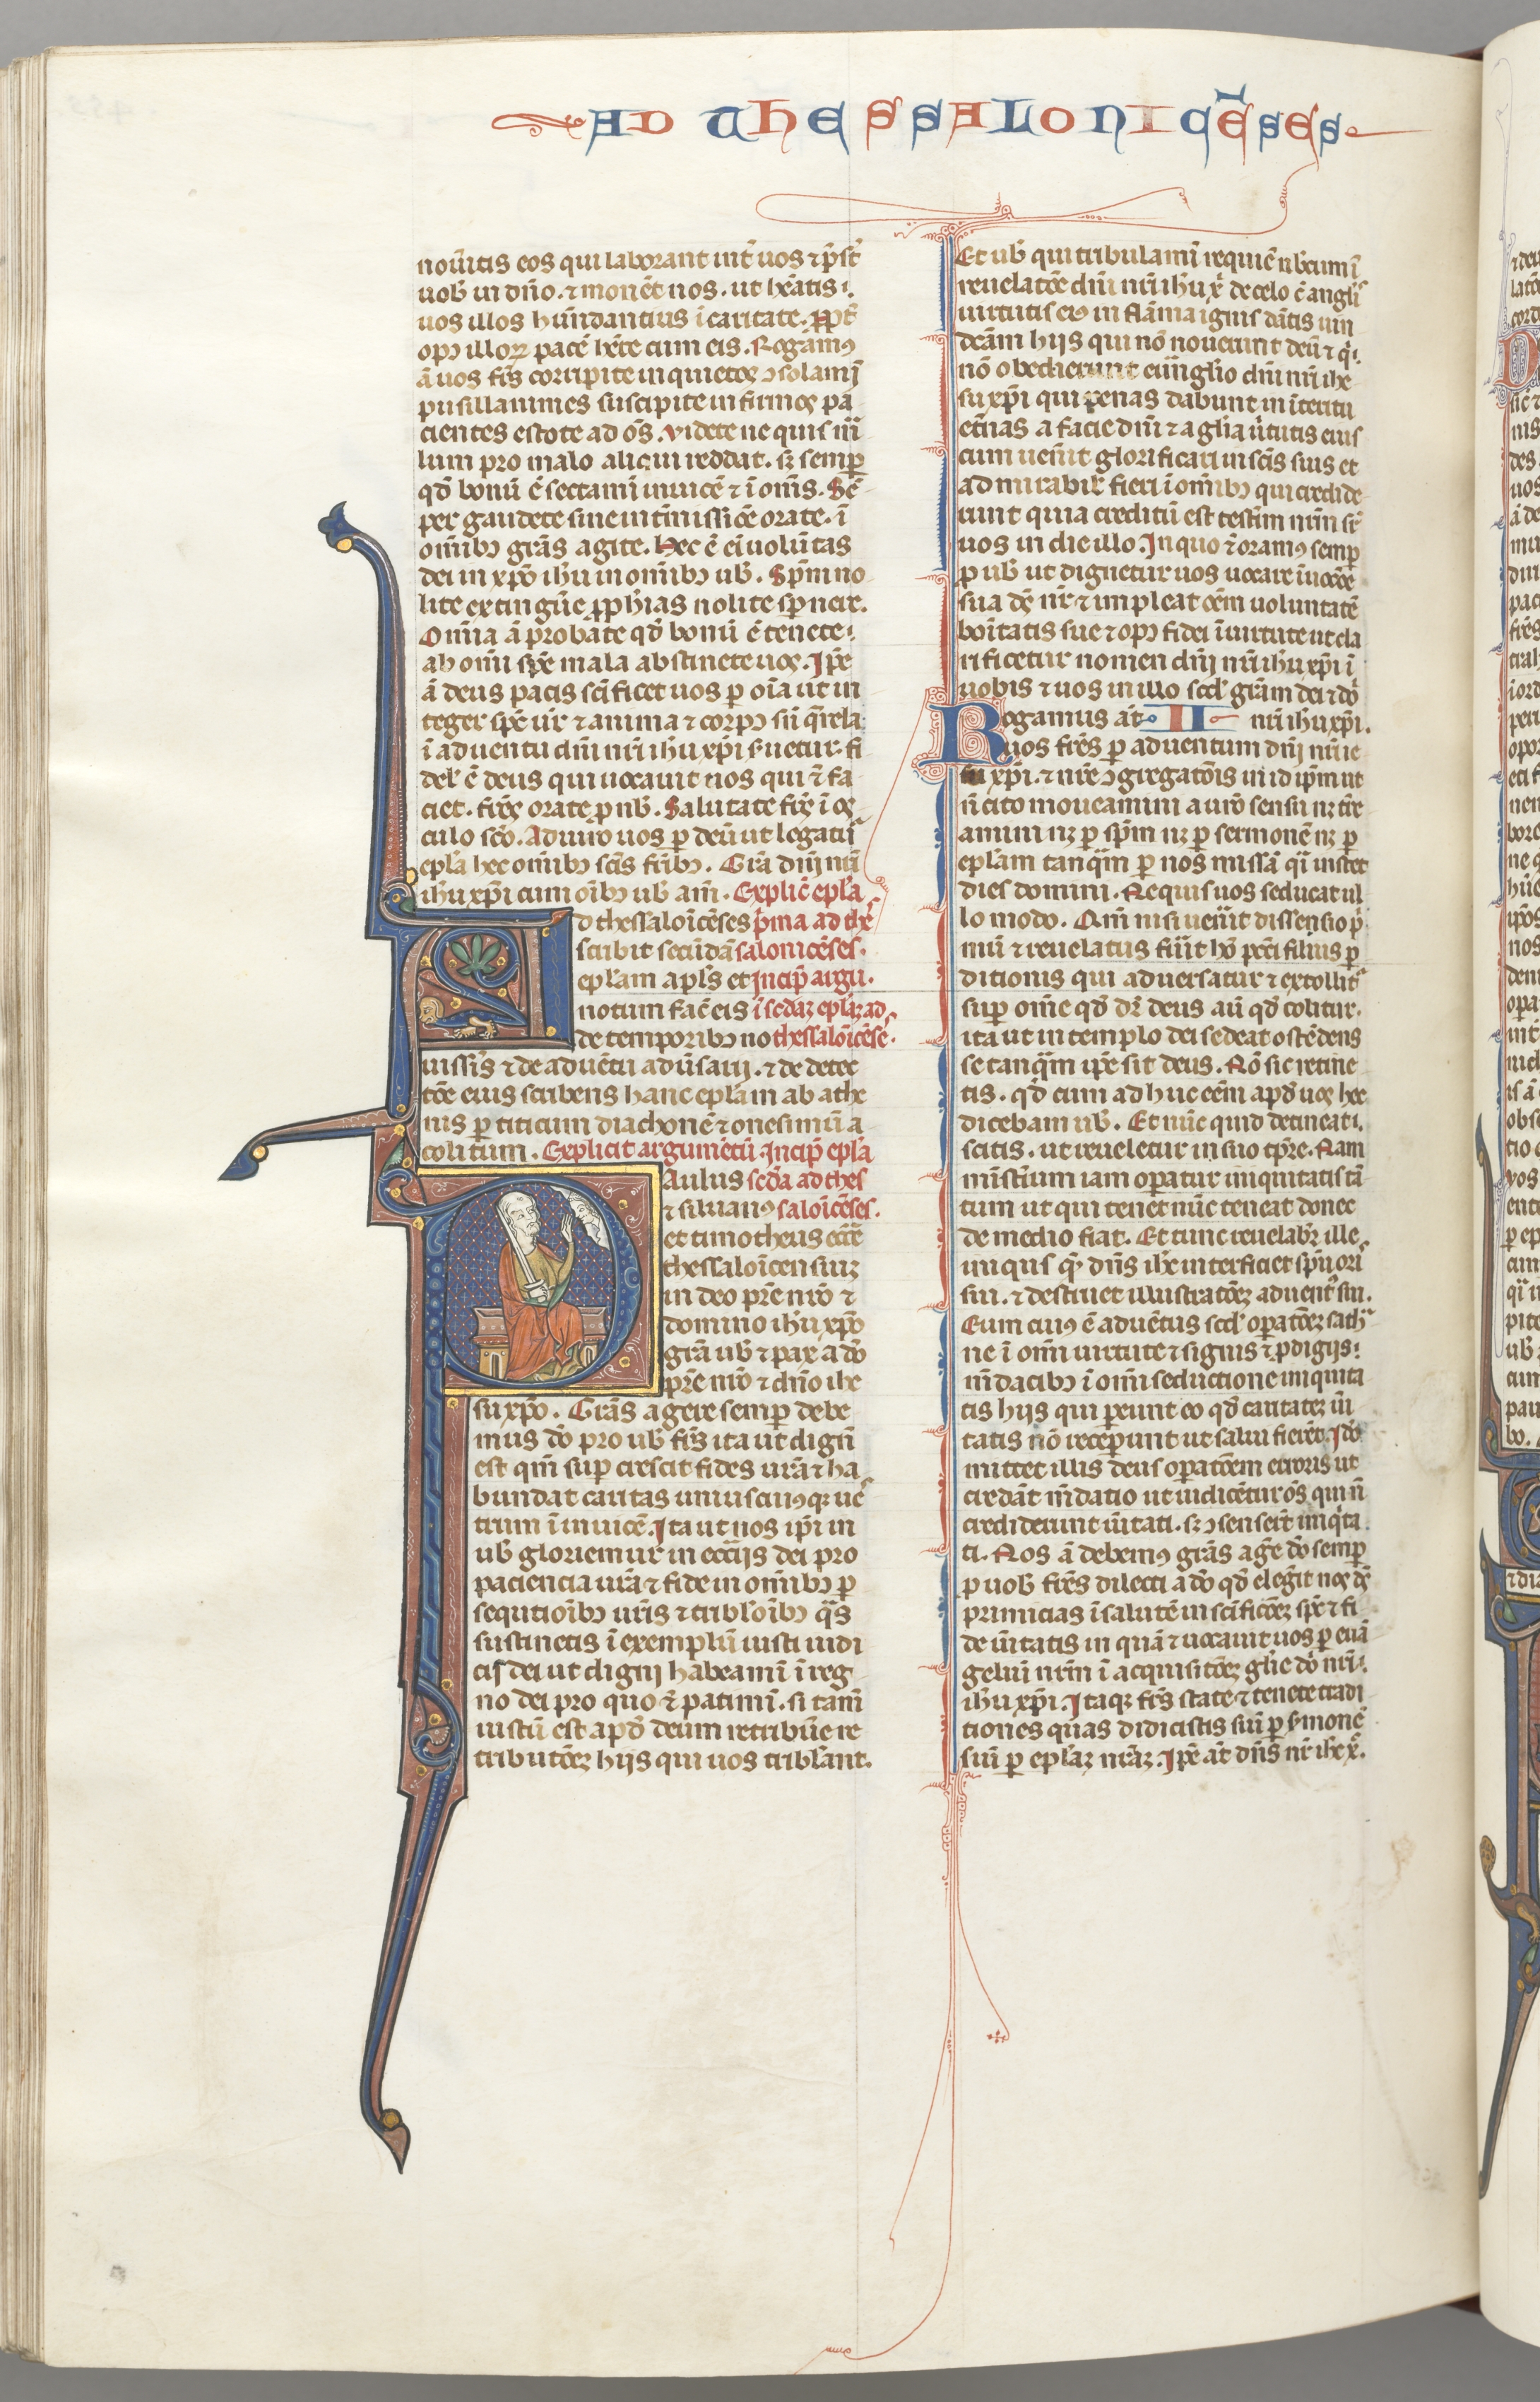 AD THESSALONICE̅SES
nou̅itis eos qui laborant int̅ uos ⁊ p̅st̅
uob̅ in dn̅o . ⁊ mone̅t uos . ut he̅atis
uos illos hu̅ndantius i̅ caritate . p̅pt̅
opꝰ illoꝝ pace̅ he̅te cum eis . Rogamꝰ
a̅ uos fr̅s corripite inquietos ꝯsolami̅
pusillanimes suscipite infirmos pa
cientes estote ad o̅s . videte ne quis m̅
lum pro malo alicui reddat . sꝫ semp̅
qd̅ bonu̅ e̅ sectami̅ inuice̅ ⁊ i̅ om̅s . Se̅
per gaudete sine int̅missi̅ce orate . i̅
om̅ibꝰ gra̅s agite . Hec e̅ ei̅ uolu̅tas
dei in xp̅o ih̅u in om̅ibꝰ ub̅ . Sp̅m no
lite extingu̅e p̅ph̅ias nolite sp̅nere .
Om̅ia a̅ probate qd̅ bonu̅ e̅ tenete
ab om̅i sp̅e mala abstinete uos . Ip̅e
a̅ deus pacis sc̅ificet uos ꝑ oi̅a ut in
teger sp̅c ur̅ ⁊ anima ⁊ corpꝰ sn̅ q̅rela
i̅ aduentu dn̅i nr̅i ih̅u xp̅i s̅uetur . fi
del̅ e̅ deus qui uocauit uos qui ⁊̅ fa
ciet . fr̅s orate ꝑ nb̅ . Salutate fr̅s i̅ os
culo sc̅o . Adiuro uos ꝑ deu̅ ut legatur̅
epl̅a hec om̅ibꝰ sc̅is fr̅ibꝰ . Gr̅a dn̅i nr̅i
ih̅u xp̅i cum oi̅bꝰ ub̅ am̅ . Explic̅ epl̅a
Ad thessaloi̅ce̅ses p̅ma ad the
scribit secu̅da̅ salonice̅ses .
epl̅am apl̅s et Incip̅ argu .
notum fac̅ eis i̅ sc̅daꝫ epl̅aꝫ ad
de temporibꝰ no thessaloi̅ce̅se .
uissi̅s ⁊ de aduentu adu̅sarij . ⁊ de deiec
to̅e eius scribens hanc epl̅am ab athe
nis ꝑ titicum diachone̅ ⁊ onesimu̅ a
colitum . Explicit argume̅tu̅ Incip̅ epl̅a
Paulus sc̅da ad thes
⁊ siluanꝰ saloi̅ce̅ses .
et timotheus eccl̅e
thessaloi̅censiuꝫ
in deo pr̅e nr̅o ⁊
domino ih̅u xp̅o
gr̅a ub̅ ⁊ pax a do̅
pr̅e nr̅o ⁊ dn̅o ihe
su xp̅o . Gr̅as agere semp̅ debe
mus do̅ pro ub̅ fr̅s ita ut dign̅
est qm̅ sup̅ crescit fides ur̅a ⁊ ha
bundat caritas uniuscuiusqꝫ ue
trum i̅ inuice̅ . Ita ut nos ip̅i in
ub̅ gloriemur in eccl̅ijs dei pro
paciencia ur̅a ⁊ fide in om̅ibꝰ ꝑ
sequtioi̅bꝰ ur̅is ⁊ tribl̅oi̅bꝰ q̅s
sustinetis i̅ exemplu̅ iusti iudi
cij dei ut digni habeami̅ i̅ reg
no dei pro quo ⁊̅ patimi̅ . si tam̅
iustu̅ est apd̅ deum retribu̅e re
tributo̅eꝫ hijs qui uos tribl̅ant .
Et ub̅ qui tribulami̅ requie̅ nb̅cum i̅
reuelato̅e dn̅i nr̅i ih̅u x̅ de celo c̅ angl̅is
uirtutis eiꝰ in fla̅ma ignis da̅tis uin
dc̅am hijs qui no̅ nouerunt deu̅ ⁊ q̅i
no̅ obedierunt eu̅nglio dn̅i nr̅i ihe
su xp̅i qui penas dabunt in i̅teritu
et̅nas a facie dn̅i ⁊ a gl̅ia u̅tutis eius
cum uen̅it glorificari in sc̅is suis et
admirabil̅ fieri i̅ om̅ibꝰ qui credide
runt quia creditu̅ est testim̅ nr̅m sr̅
uos in die illo . In quo ⁊̅ oramꝰ semp̅
ꝑ ub̅ ut dignetur uos uocare i̅uoco̅e
sua ds̅ nr̅ ⁊ impleat oe̅m uoluntate̅
boi̅tatis sue ⁊ opꝰ fidei i̅ uirtute ut cla
rificetur nomen dn̅j nr̅i ih̅u xp̅i i̅
uobis ⁊ uos in illo scd̅ gr̅am dei ⁊ do̅
Rogamus at̅ II nr̅i ih̅u xp̅i .
uos fr̅es ꝑ aduentum dn̅j nr̅i ie
su xp̅i . ⁊ nr̅e ꝯgregato̅is in id ip̅m ut
n̅ cito moueamini a ur̅o sensu nꝫ t̅re
amini nꝫ ꝑ sp̅m nꝫ ꝑ sermone̅ nꝫ ꝑ
epl̅am tanq̅m ꝑ nos missa̅ q̅i instet
dies domini . Nequis uos seducat ul
lo modo . Qm̅ nisi uen̅it dissensio p̅
mu̅ ⁊ reuelatus fu̅it ho̅ pcc̅i filius ꝑ
ditionis qui aduersatur ⁊ extollit̅
sup̅ om̅e qd̅ dr̅ deus au̅ qd̅ colitur .
ita ut in templo dei sedeat oste̅dens
se tanq̅m ip̅e sit deus . No̅ sic retine
tis . qd̅ cum adhuc ee̅m apd̅ uos hec
dicebam ub̅ . Et nu̅c quid detineat
scitis . ut reueletur in suo tp̅re . Nam
mist̅ium iam op̅atur iniquitatis ta̅
tum ut qui tenet nu̅c teneat donec
de medio fiat . Et tunc reuelabr̅ ille
iniqus q̅ dn̅s ih̅c interficiet sp̅u ori̅
sui . ⁊ destruet illustrato̅eꝫ aduent̅ sui .
Eum cuiꝰ e̅ aduentus scd̅ op̅ato̅eꝫ sath̅
ne i̅ om̅i uirtute ⁊ signis ⁊ ꝓdigijs
m̅dacibꝰ i̅ om̅i seductione iniquita
tis hijs qui p̅eunt eo qd̅ caritateꝫ u̅i
tatis no̅ recep̅unt ut salui fiere̅t . Ido̅
mittet illis deus op̅ato̅em erroris ut
creda̅t m̅datio ut iudice̅tur o̅s qui n̅
crediderunt u̅itati . sꝫ ꝯsenser̅t iniq̅ta
ti . Nos a̅ debemꝰ gra̅s ag̅e do̅ semp̅
ꝑ uob̅ fr̅es dilecti a do̅ qd̅ eleg̅it nos ds̅
primicias i̅ salute̅ in sc̅ifico̅eꝫ sp̅c ⁊ fi
de u̅itatis in qua̅ ⁊ uocauit uos ꝑ eua̅
geliu̅ nr̅m i̅ acquisito̅eꝫ gl̅ie do̅ nr̅i
ih̅u xp̅i . Itaqꝫ fr̅s state ⁊ tenete tradi
tiones quas didicistis siu̅ ꝑ s̅mone̅
siu̅ ꝑ epl̅aꝫ nr̅aꝫ . Ip̅e at̅ dn̅s nr̅ ih̅c x̅ .